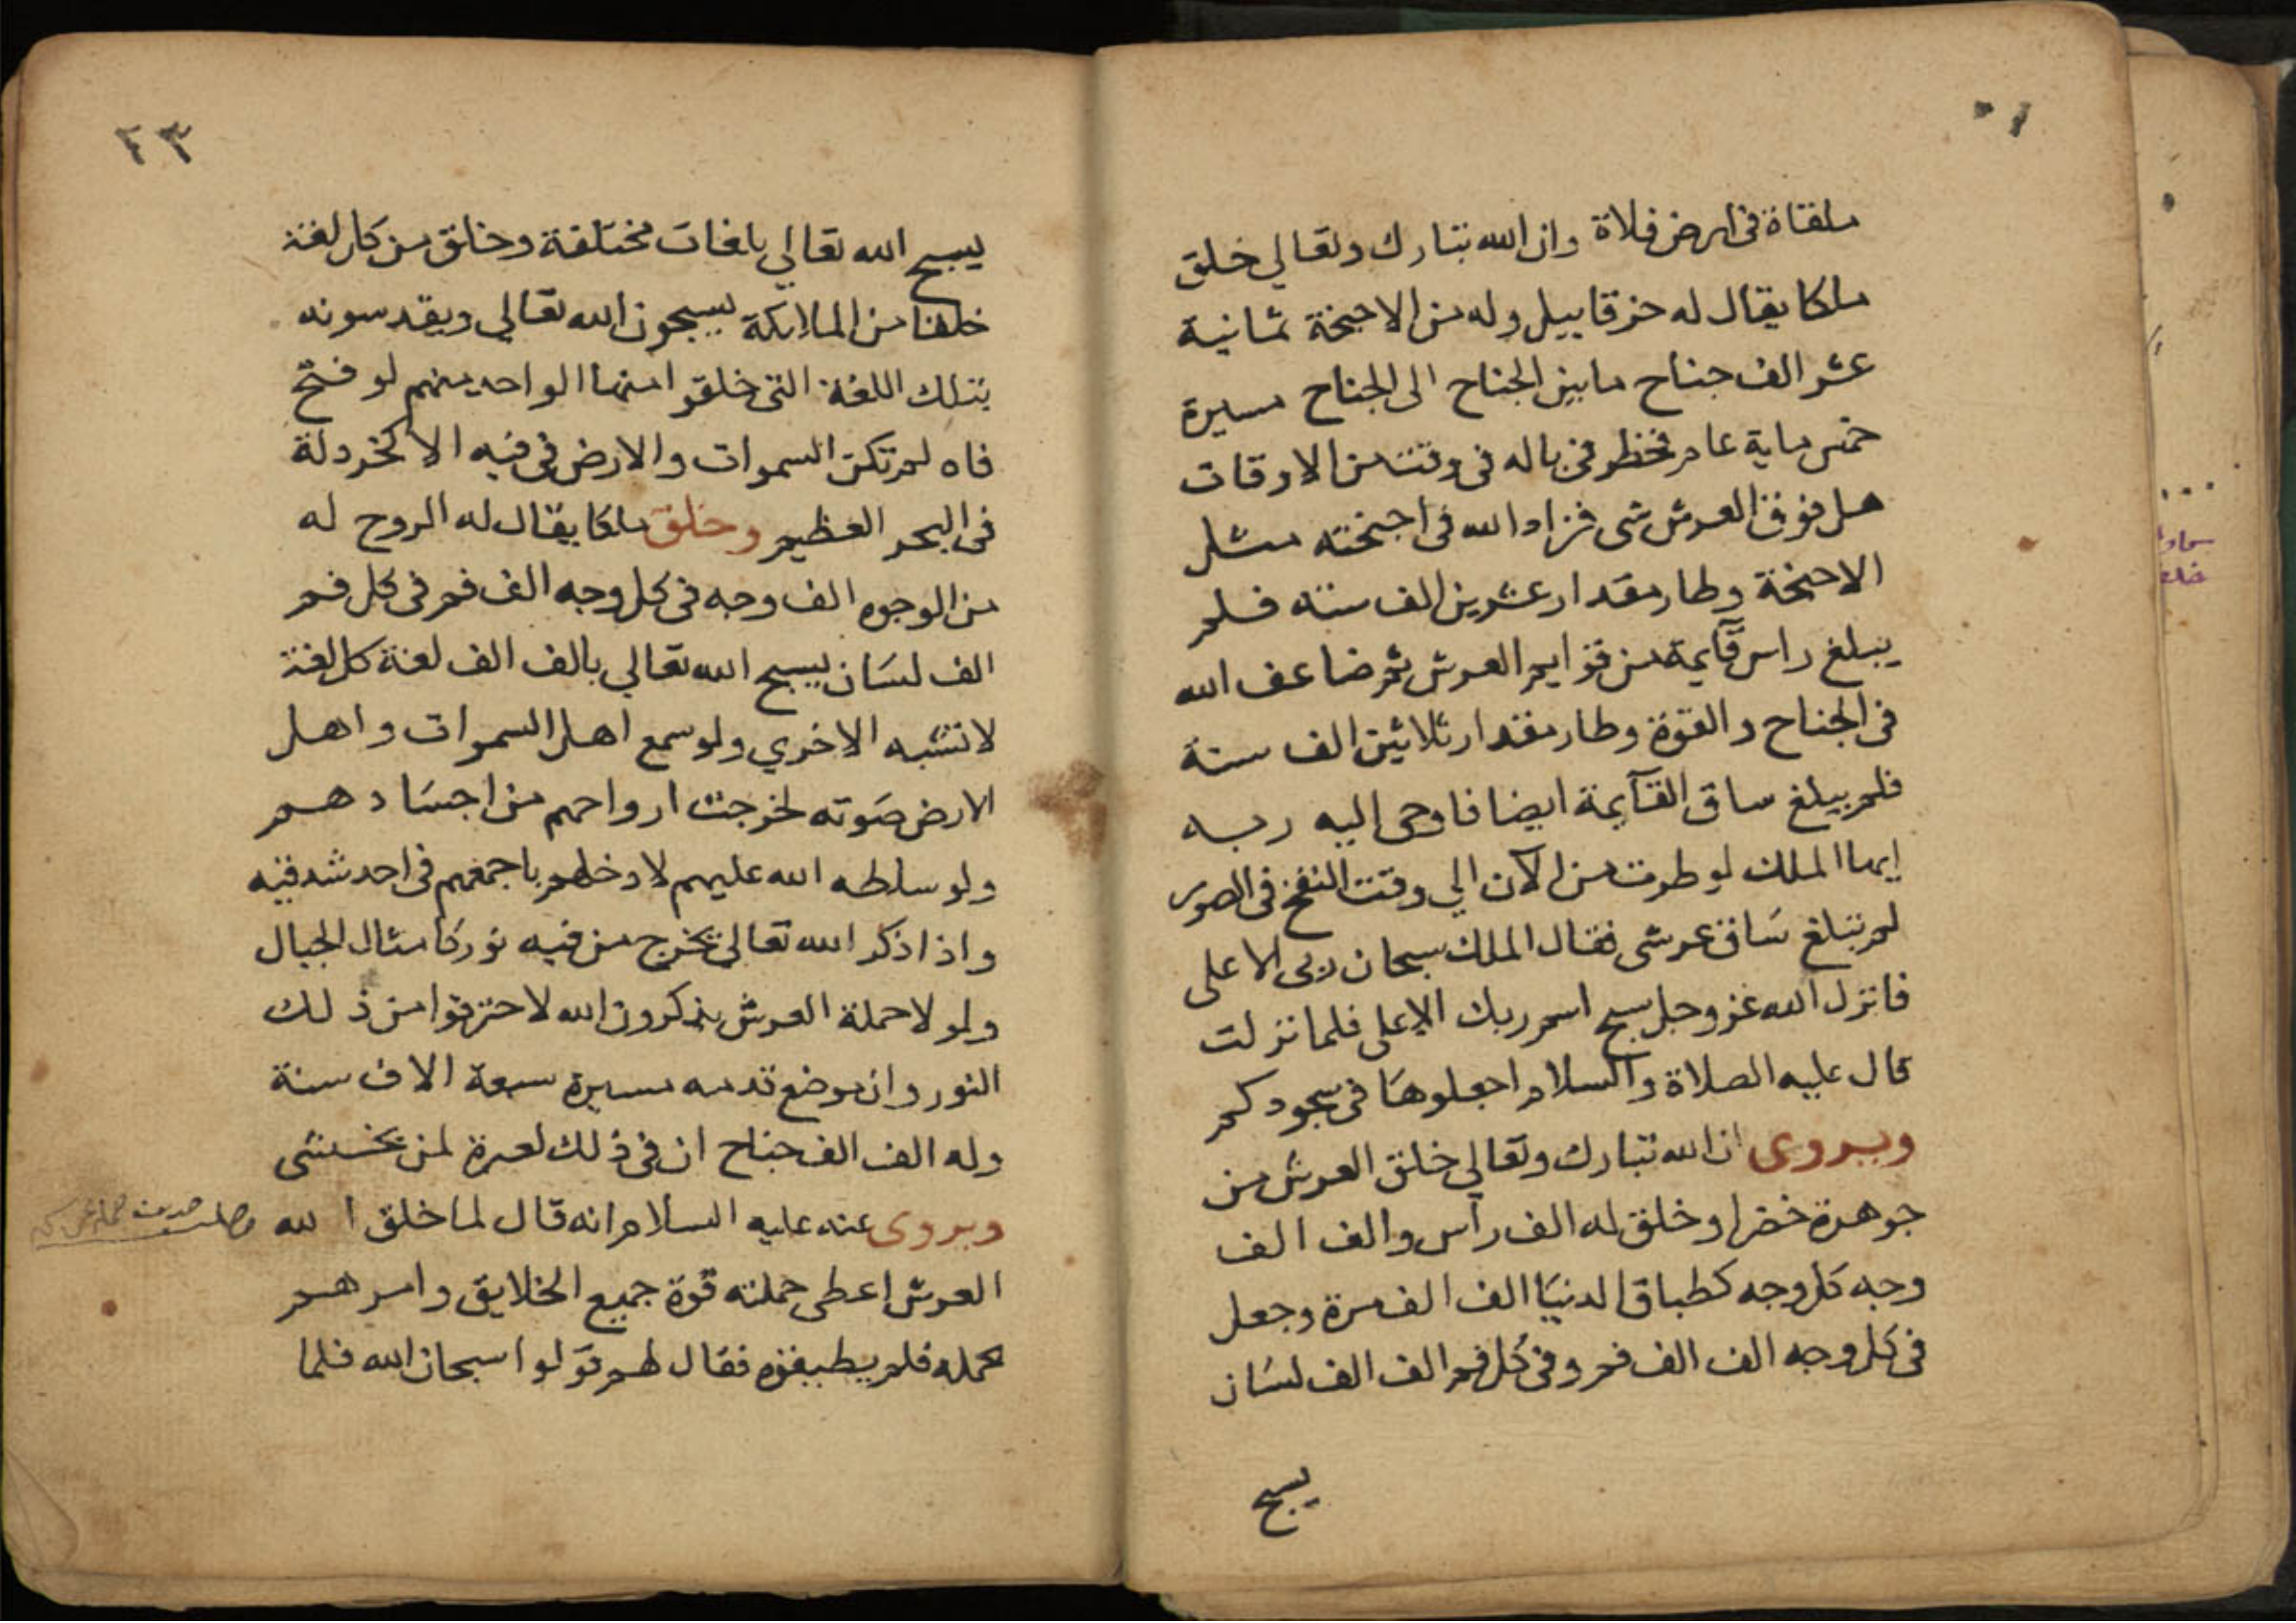 ملقاة فى ارض فلاة وان الله تبارك وتعالي خلق
ملكا يقال له حزقاييل وله من الاجنحة ثمانية
عشر الف جناح مابين الجناح الى الجناح مسيرة
خمس ماية عام فخطر فى باله فى وقت من الاوقات
هل فوق العرش شى فزاد الله فى اجنحته مثل
الاجنحة وطار مقدار عشرين الف سنة فلم
يبلغ راس قآيمة من قوايم العرش ثم ضاعف الله
فى الجناح والقوة وطار مقدار ثلاثين الف سنة
فلم يبلغ ساق القآيمة ايضا فاوحى اليه ربه
ايها الملك لو طرت من الآن الي وقت النفخ فى الصور
لم تبلغ ساق عرشى فقال الملك سبحان ربى الاعلى
فانزل الله عز وجل سبح اسم ربك الاعلى فلما نزلت
قال عليه الصلاة والسلام اجعلوها فى سجودكم
ويروى ان الله تبارك وتعالي خلق العرش من
جوهرة خضرا وخلق له الف رأس والف الف
وجه كل وجه كطباق الدنيا الف الف مرة وجعل
فى كل وجه الف الف فم وفى كل فم الف الف لسان
يسبح
٢٣
يسبح الله تعالي بلغات مختلفة وخلق من كل لغة
خلقا من الملايكة يسبحون الله تعالي ويقدسونه
بتلك اللغة التى خلقوا منها الواحد منهم لو فتح
فاه لم تكن السموات والارض فى فيه الا كخردلة
فى البحر العظيم وخلق ملكا يقال له الروح له
من الوجوه الف وجه فى كل وجه الف فم فى كل فم
الف لسان يسبح الله تعالي بالف الف لغة كل لغة
لا تشبه الاخري ولو سمع اهل السموات واهل
الارض صوته لخرجت ارواحهم من اجسادهم
ولو سلطه الله عليهم لادخلهم باجمعهم فى احد شدقيه
واذا ذكر الله تعالي يخرج من فيه نور كامثال الجبال
ولولا حملة العرش يذكرون الله لاحترقوا من ذلك
النور وان موضع قدمه مسيرة سبعة الاف سنة
وله الف الف جناح ان فى ذلك لعبرة لمن يخشى
ويروى عنه عليه السلام انه قال لما خلق الله
العرش اعطى حملته قوة جميع الخلايق وامرهم
بحمله فلم يطيقوه فقال لهم قولوا سبحان الله فلما